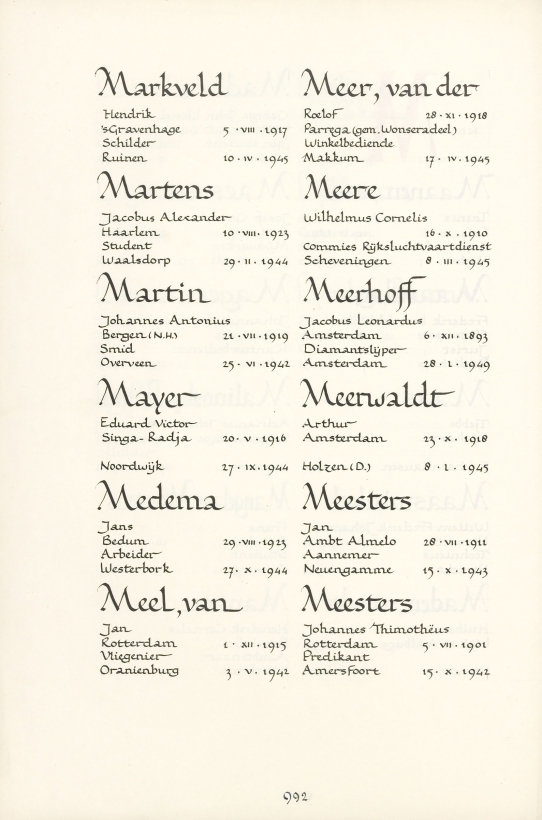 Markveld
Hendrik
'sGravenhage 5 · VIII · 1917
Schilder
Ruinen 10 · IV · 1945
Martens
Jacobus Alexander
Haarlem 10 · VIII · 1923
Student
Waalsdorp 29 · II · 1944
Martin
Johannes Antonius
Bergen (N.H.) 21 · VII · 1919
Smid
Overveen 25 · VI · 1942
Mayer
Eduard Victor
Singa-Radja 20 · V · 1916
Noordwijk 27 · IX · 1944
Medema
Jans
Bedum 29 · VIII · 1923
Arbeider
Westerbork 27 · X · 1944
Meel, van
Jan
Rotterdam 1 · XII · 1915
Vliegenier
Oranienburg 3 · V · 1942
Meer, van der
Roelof 28 · XI · 1918
Parrega (gem. Wonseradeel)
Winkelbediende
Makkum 17 · IV · 1945
Meere
Wilhelmus Cornelis
16 · X · 1910
Commies Rijksluchtvaartdienst
Scheveningen 8 · III · 1945
Meerhoff
Jacobus Leonardus
Amsterdam 6 · XII · 1893
Diamantslijper
Amsterdam 28 · I · 1949
Meerwaldt
Arthur
Amsterdam 23 · X · 1918
Holzen (D.) 8 · I · 1945
Meesters
Jan
Ambt Almelo 28 · VII · 1911
Aannemer
Neuengamme 15 · X · 1943
Meesters
Johannes Thimothëus
Rotterdam 5 · VII · 1901
Predikant
Amersfoort 15 · X · 1942
992